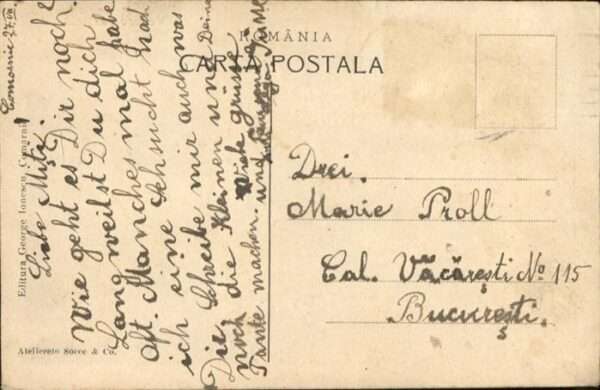 ROMÂNIA
CARTA POSTALA
Editura George Ionescu, Comarnic
Atelierele Socec & Co.
Comarnic 27.VII.
Liebe Miți!
Wie geht es Dir noch?
Langweilst Du dich
oft. Manches mal habe
ich eine Sehsucht nach
Dir. Schreibe mir auch was
noch die Kleinen und Deine
Tante machen. Viele Grüsse
und
Drei.
Marie Proll
Cal. Văcărești No 115
București.